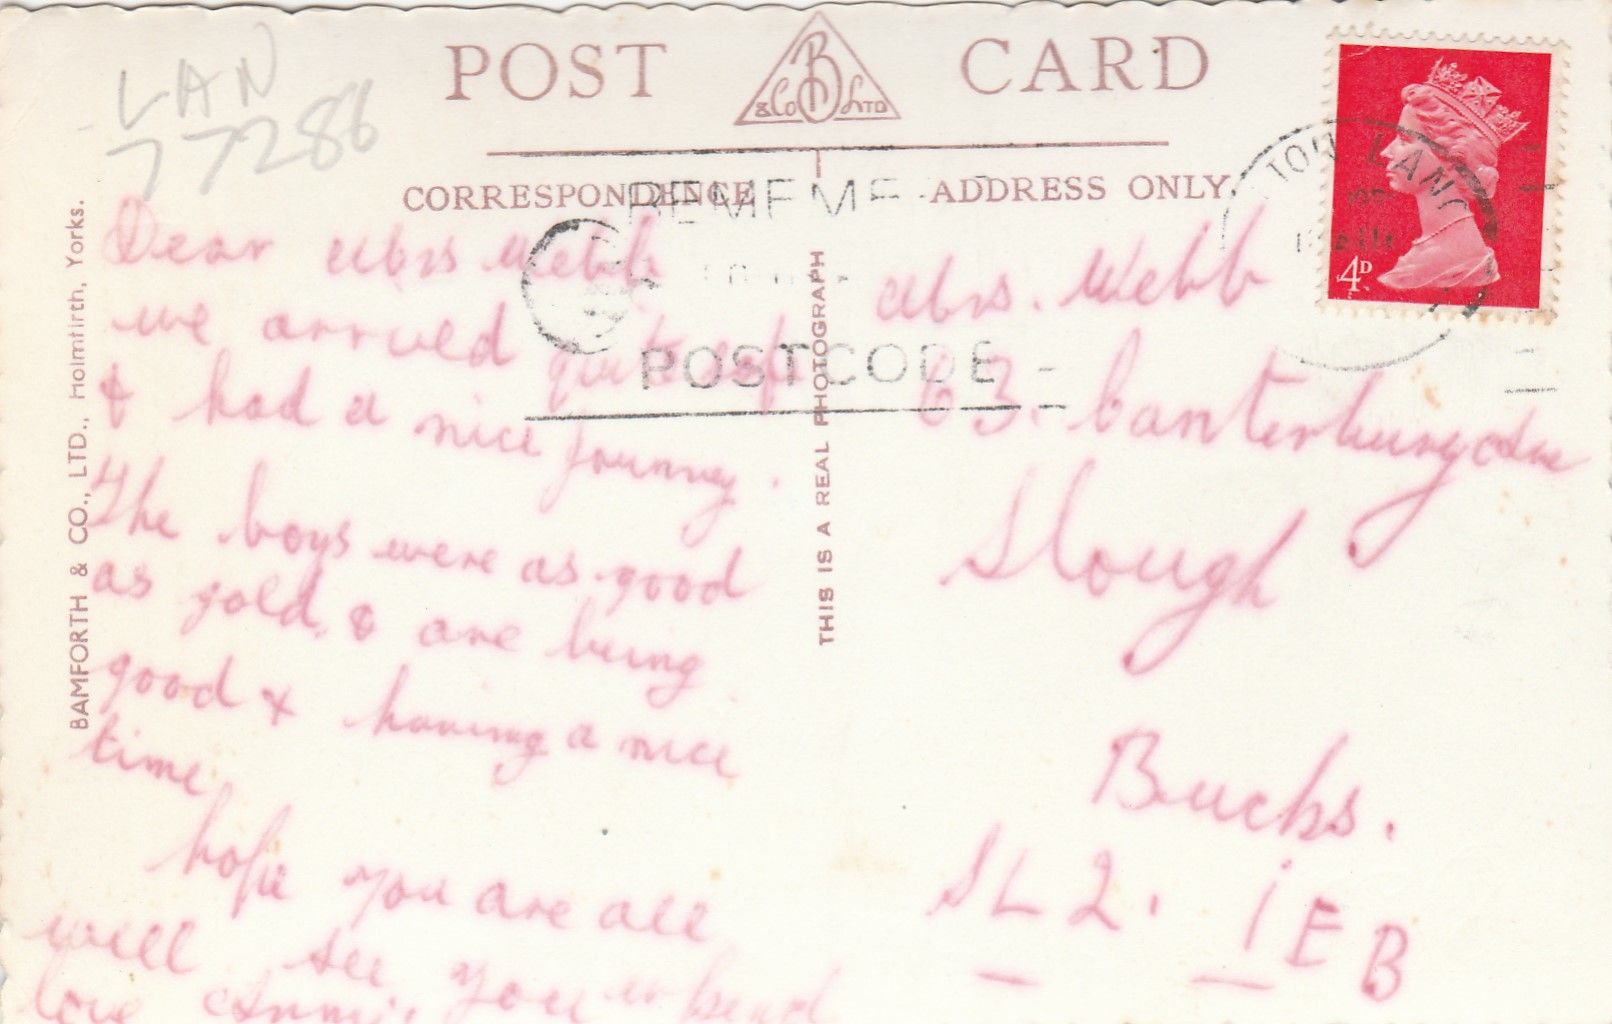 LAN
77286
POST CARD
B
& Co LTD
CORRESPONDENCE
ADDRESS ONLY.
REMEMBE
POSTCODE
LANC
4D
BAMFORTH & CO., LTD., Holmfirth, Yorks.
THIS IS A REAL PHOTOGRAPH
Dear Mrs Webb
we arrived quite safe
& had a nice journey.
The boys were as good
as gold, & are being
good & having a nice
time.
hope you are all
well see you w kend
love Annie
Mrs. Webb
63. Canterbury Ave
Slough
Bucks.
SL2. 1EB